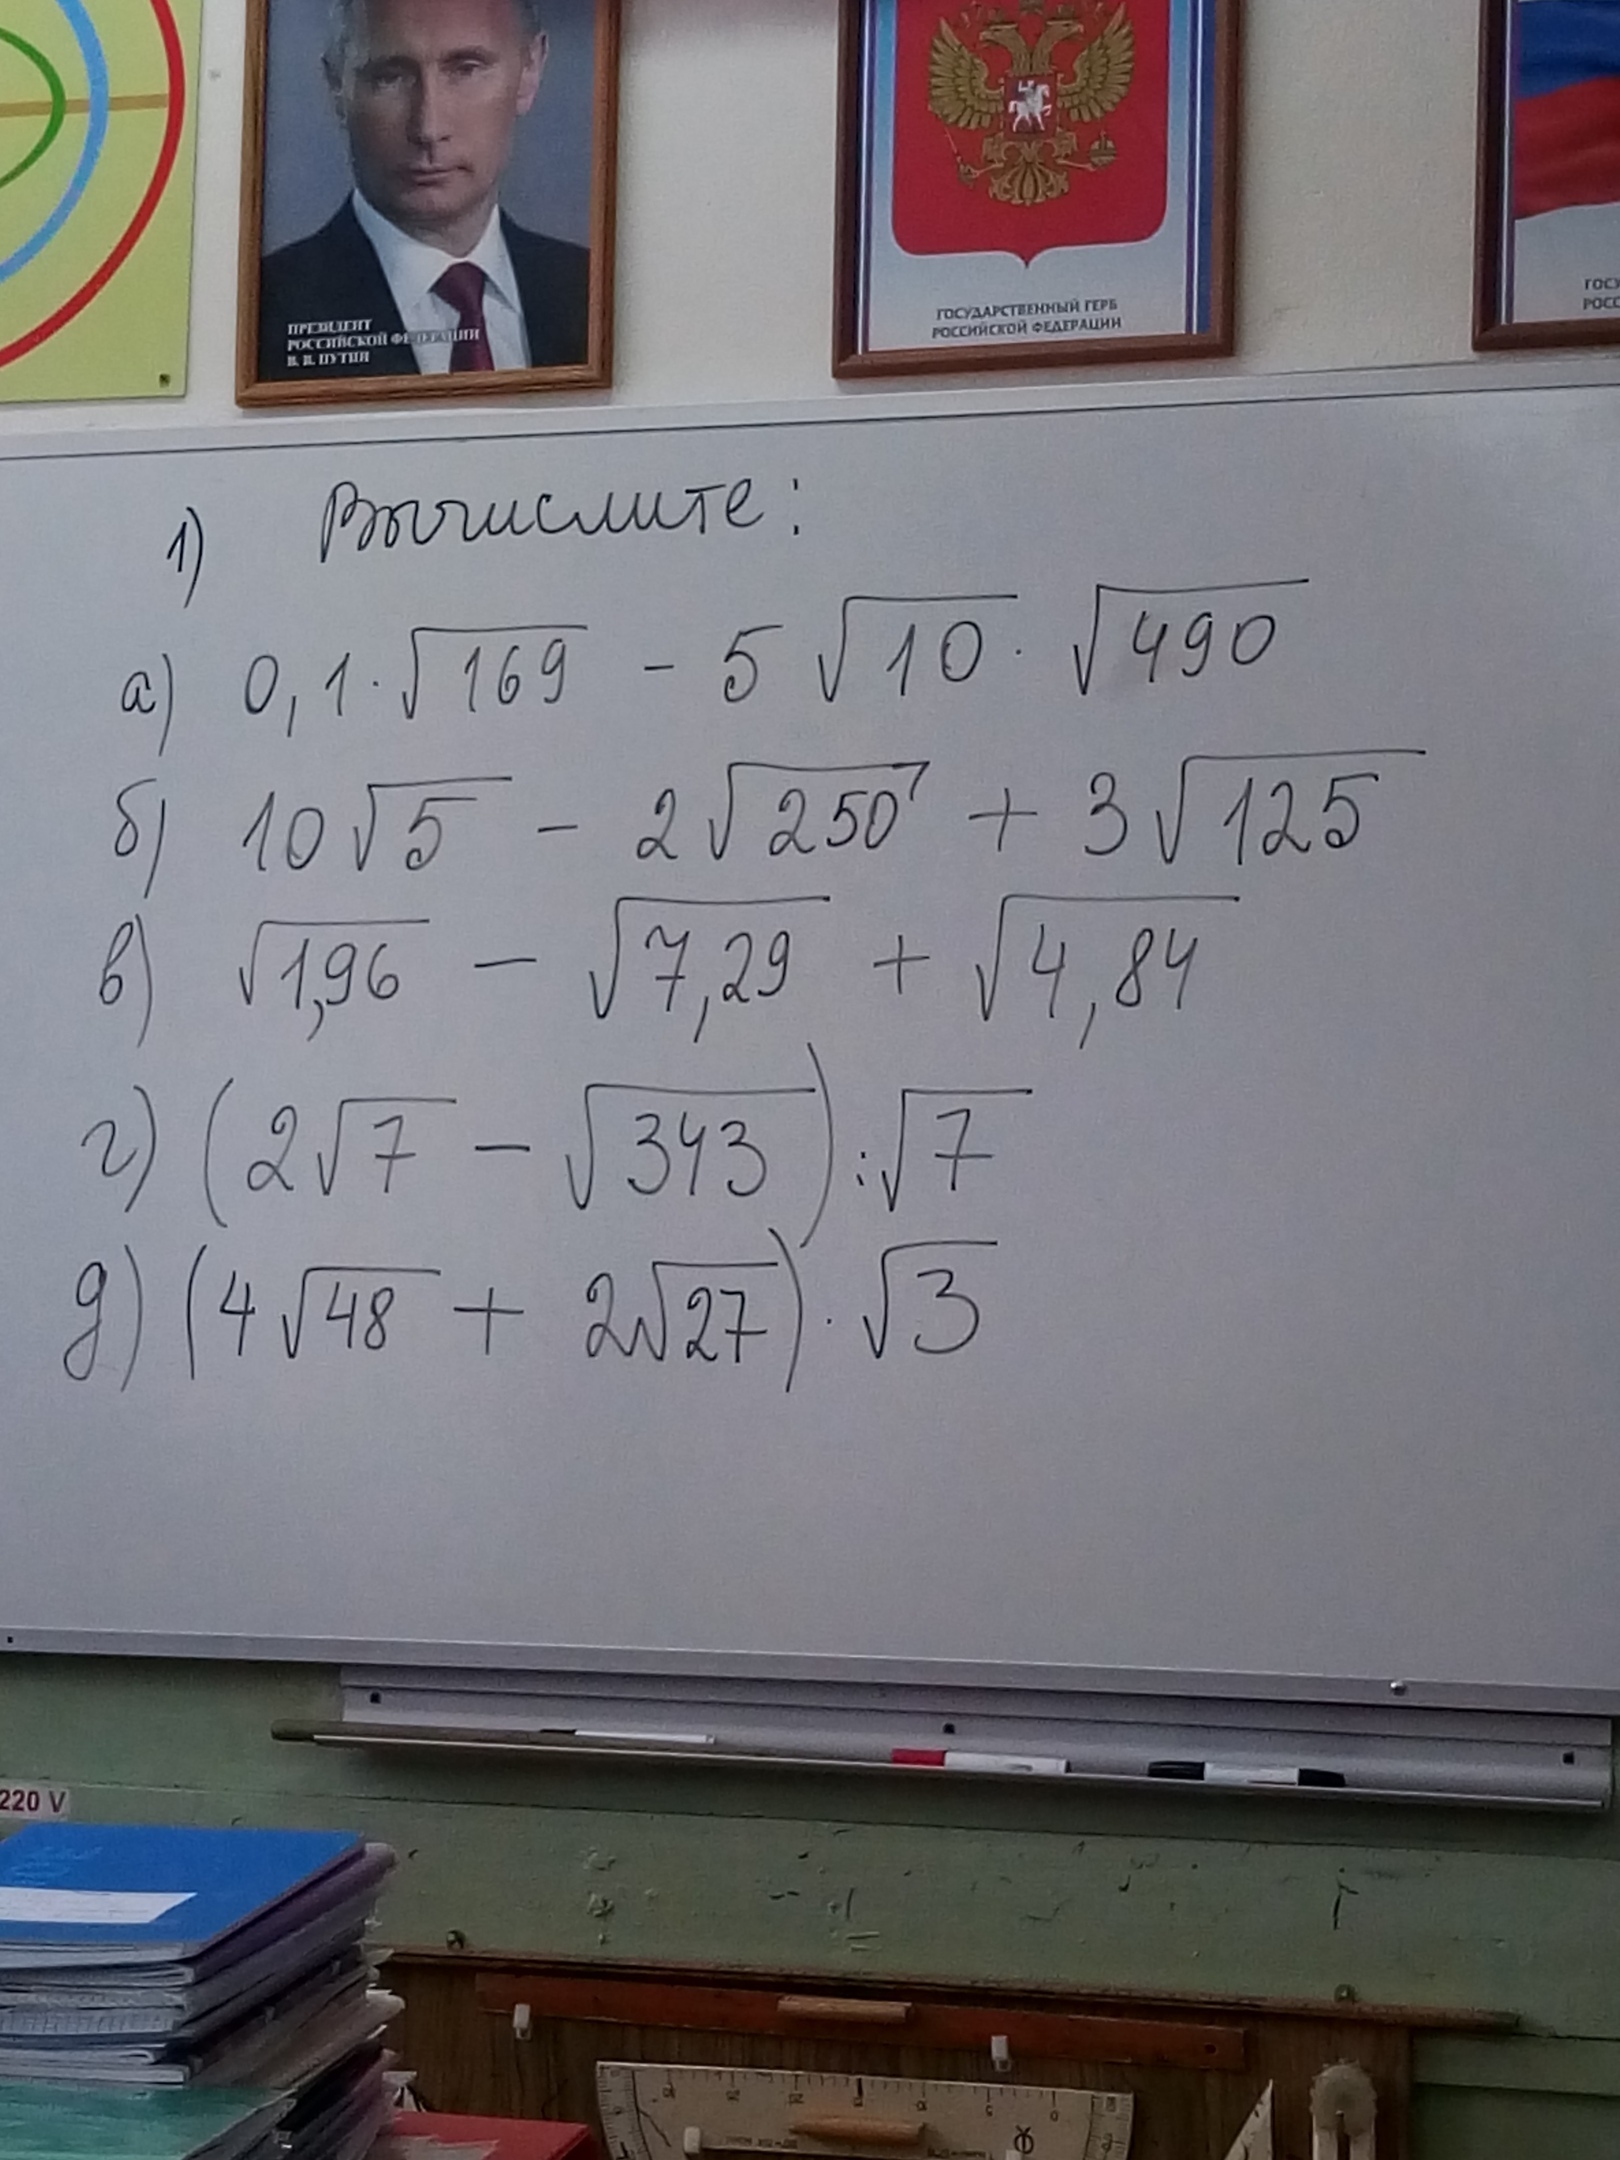 ПРЕЗИДЕНТ
РОССИЙСКОЙ ФЕДЕРАЦИИ
В. В. ПУТИН
ГОСУДАРСТВЕННЫЙ ГЕРБ
РОССИЙСКОЙ ФЕДЕРАЦИИ
1) Вычислите:
а) 0,1·√169 - 5√10·√490
б) 10√5 - 2√250 + 3√125
в) √1,96 - √7,29 + √4,84
г) (2√7 - √343):√7
д) (4√48 + 2√27)·√3
220 V